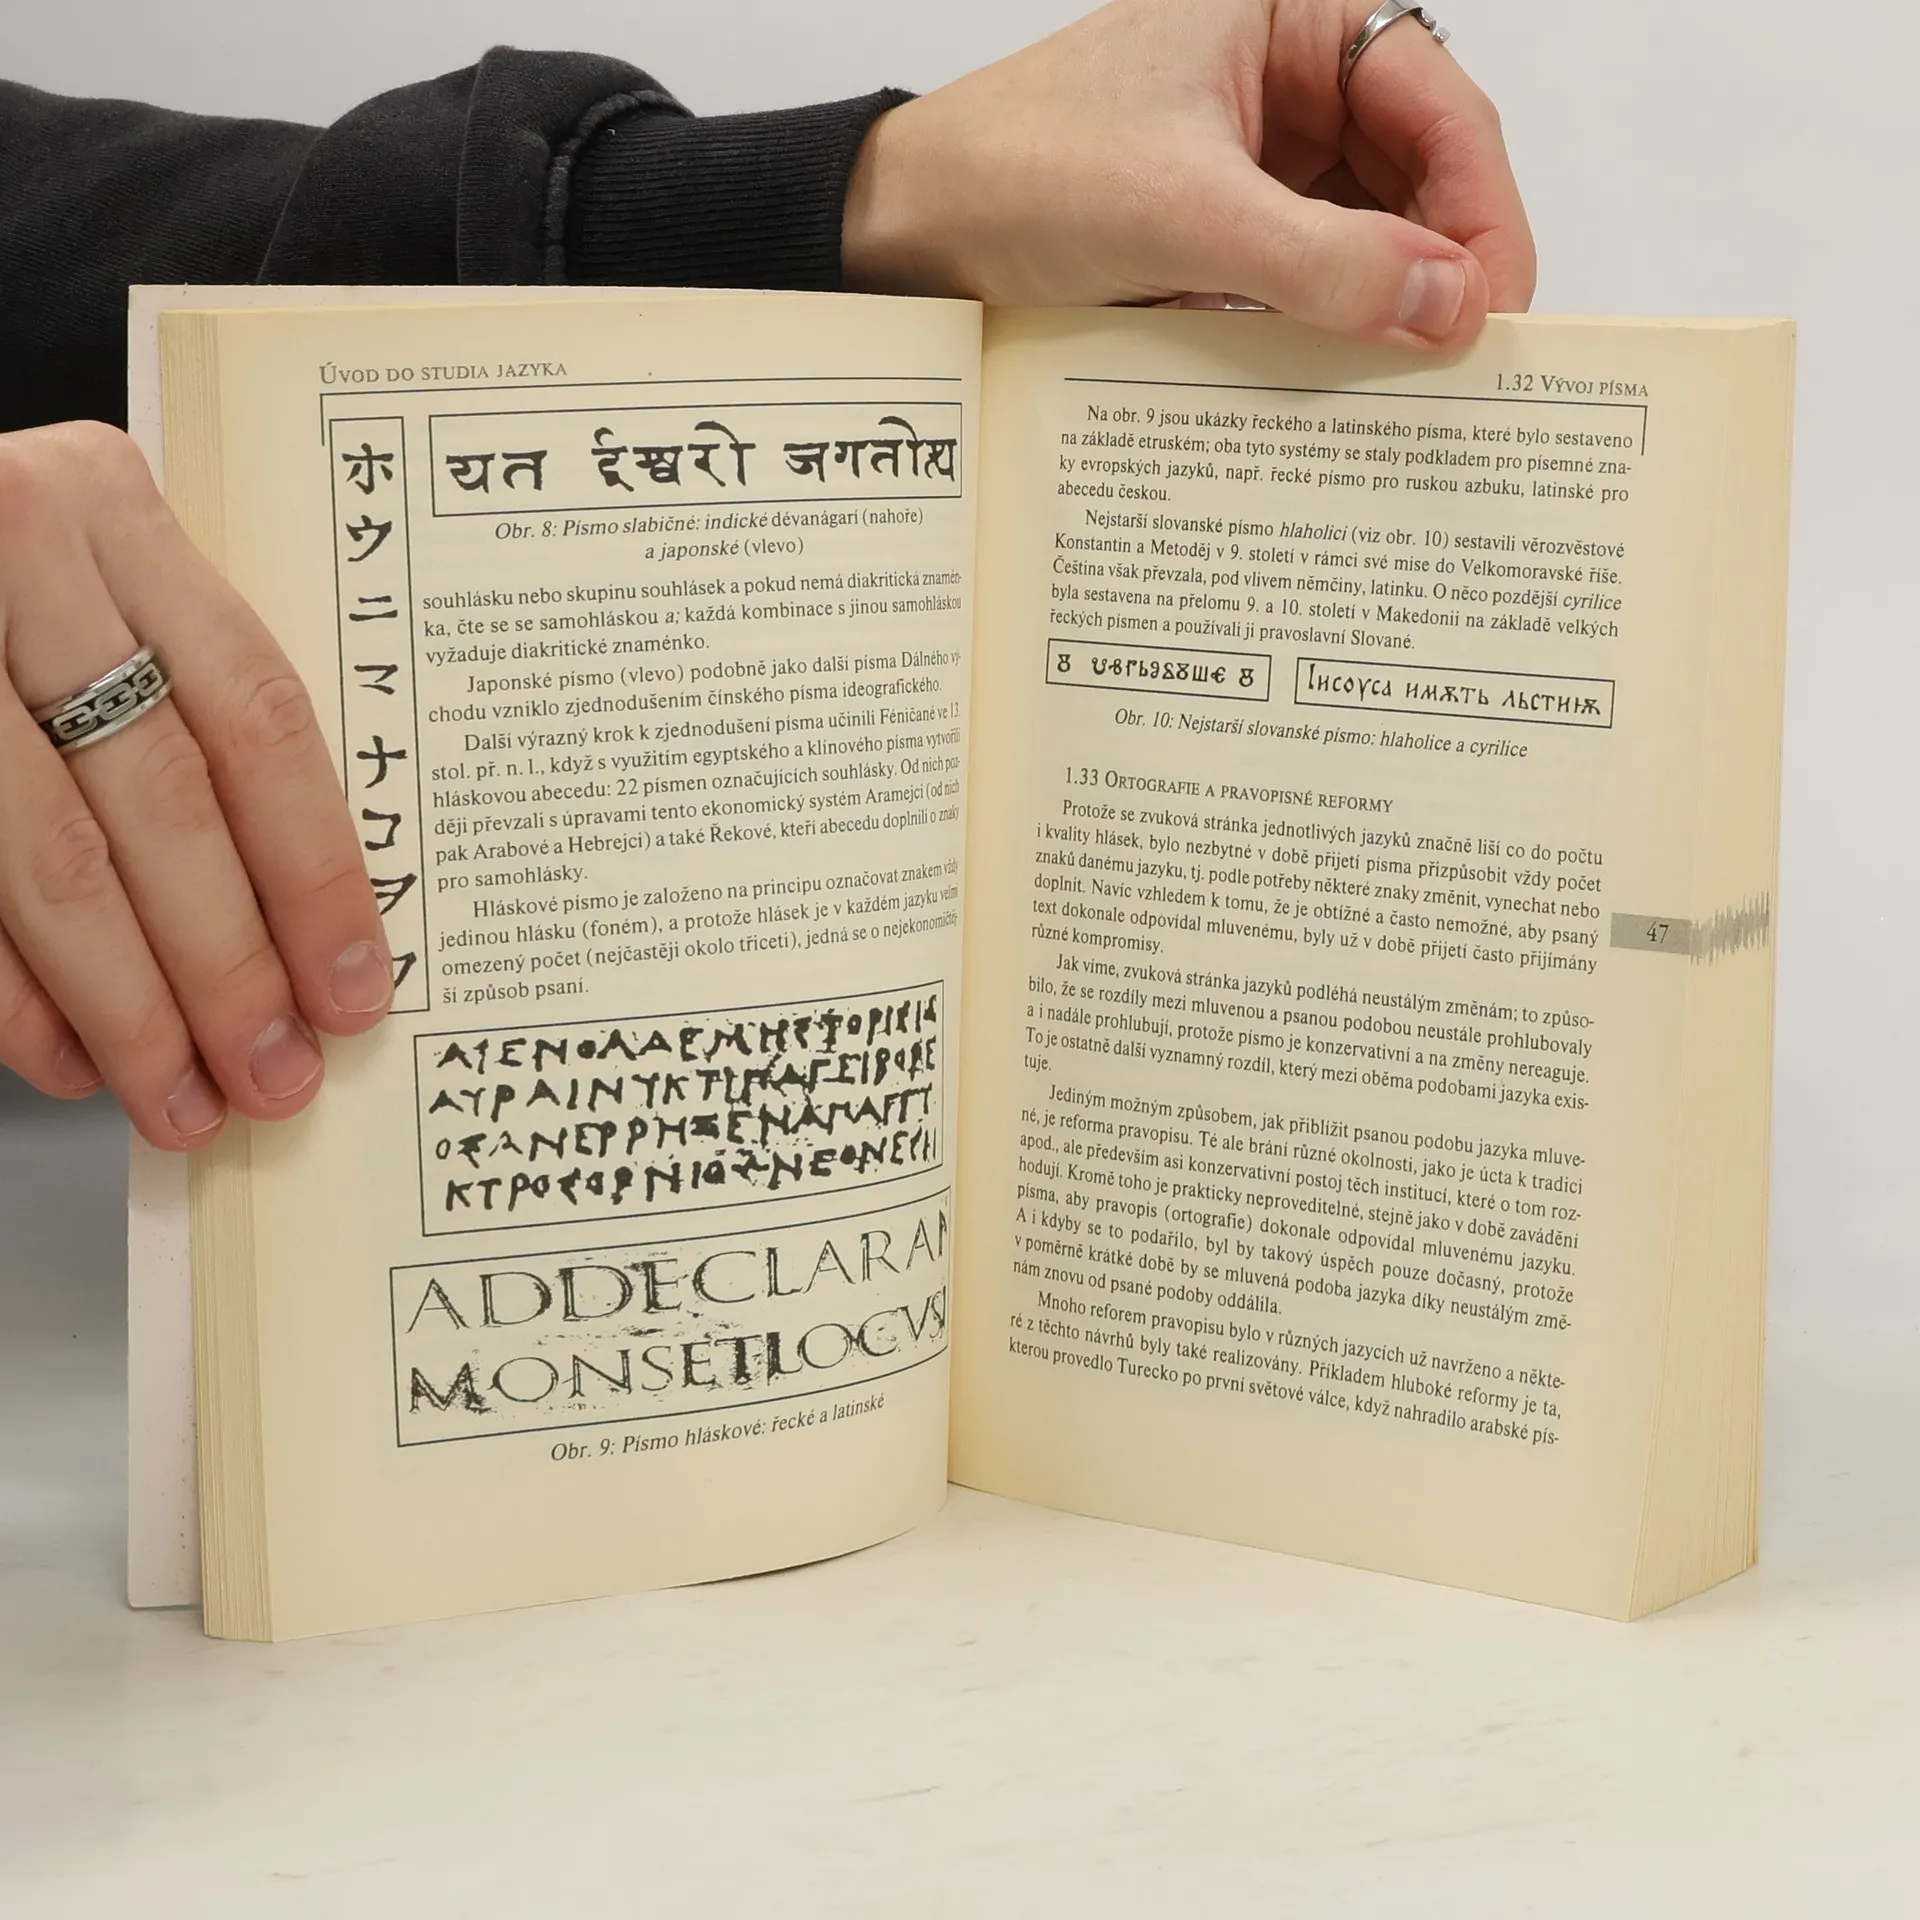 ÚVOD DO STUDIA JAZYKA
ホ
ウ
ニ
マ
ナ
コ
यत ईश्वरो जगतोत्थ
Obr. 8: Písmo slabičné: indické dévanágarí (nahoře)
a japonské (vlevo)
souhlásku nebo skupinu souhlásek a pokud nemá diakritická znamén-
ka, čte se se samohláskou a; každá kombinace s jinou samohláskou
vyžaduje diakritické znaménko.
Japonské písmo (vlevo) podobně jako další písma Dálného vý-
chodu vzniklo zjednodušením čínského písma ideografického.
Další výrazný krok k zjednodušení písma učinili Féničané ve 13.
stol. př. n. l., když s využitím egyptského a klínového písma vytvořili
hláskovou abecedu: 22 písmen označujících souhlásky. Od nich poz-
ději převzali s úpravami tento ekonomický systém Aramejci (od nich
pak Arabové a Hebrejci) a také Řekové, kteří abecedu doplnili o znaky
pro samohlásky.
Hláskové písmo je založeno na principu označovat znakem vždy
jedinou hlásku (foném), a protože hlásek je v každém jazyku velmi
omezený počet (nejčastěji okolo třiceti), jedná se o nejekonomičtěj-
ší způsob psaní.
ADDECLARAN
MONSETLOCVS
Obr. 9: Písmo hláskové: řecké a latinské
1.32 VÝVOJ PÍSMA
Na obr. 9 jsou ukázky řeckého a latinského písma, které bylo sestaveno
na základě etruském; oba tyto systémy se staly podkladem pro písemné zna-
ky evropských jazyků, např. řecké písmo pro ruskou azbuku, latinské pro
abecedu českou.
Nejstarší slovanské písmo hlaholici (viz obr. 10) sestavili věrozvěstové
Konstantin a Metoděj v 9. století v rámci své mise do Velkomoravské říše.
Čeština však převzala, pod vlivem němčiny, latinku. O něco pozdější cyrilice
byla sestavena na přelomu 9. a 10. století v Makedonii na základě velkých
řeckých písmen a používali ji pravoslavní Slované.
Інсоуса имѫть льстиѭ
Obr. 10: Nejstarší slovanské písmo: hlaholice a cyrilice
1.33 ORTOGRAFIE A PRAVOPISNÉ REFORMY
Protože se zvuková stránka jednotlivých jazyků značně liší co do počtu
i kvality hlásek, bylo nezbytné v době přijetí písma přizpůsobit vždy počet
znaků danému jazyku, tj. podle potřeby některé znaky změnit, vynechat nebo
doplnit. Navíc vzhledem k tomu, že je obtížné a často nemožné, aby psaný
text dokonale odpovídal mluvenému, byly už v době přijetí často přijímány
různé kompromisy.
47
Jak víme, zvuková stránka jazyků podléhá neustálým změnám; to způso-
bilo, že se rozdíly mezi mluvenou a psanou podobou neustále prohlubovaly
a i nadále prohlubují, protože písmo je konzervativní a na změny nereaguje.
To je ostatně další významný rozdíl, který mezi oběma podobami jazyka exis-
tuje.
Jediným možným způsobem, jak přiblížit psanou podobu jazyka mluve-
né, je reforma pravopisu. Té ale brání různé okolnosti, jako je úcta k tradici
apod., ale především asi konzervativní postoj těch institucí, které o tom roz-
hodují. Kromě toho je prakticky neproveditelné, stejně jako v době zavádění
písma, aby pravopis (ortografie) dokonale odpovídal mluvenému jazyku.
A i kdyby se to podařilo, byl by takový úspěch pouze dočasný, protože
v poměrně krátké době by se mluvená podoba jazyka díky neustálým změ-
nám znovu od psané podoby oddálila.
Mnoho reforem pravopisu bylo v různých jazycích už navrženo a někte-
ré z těchto návrhů byly také realizovány. Příkladem hluboké reformy je ta,
kterou provedlo Turecko po první světové válce, když nahradilo arabské pís-